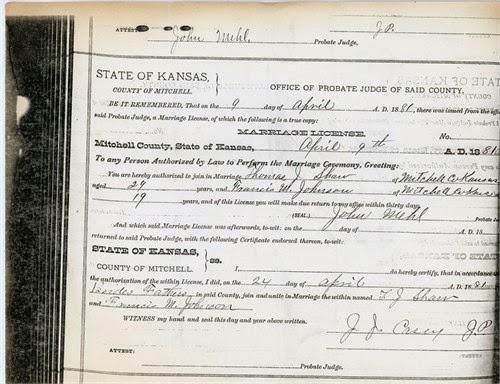 ATTEST: John Mehl J.P.
Probate Judge.
STATE OF KANSAS,
COUNTY OF MITCHELL.
OFFICE OF PROBATE JUDGE OF SAID COUNTY.
BE IT REMEMBERED, That on the 9 day of April A. D. 1881, there was issued from the office
said Probate Judge, a Marriage License, of which the following is a true copy:
MARRIAGE LICENSE. No.
Mitchell County, State of Kansas, April 9th A. D. 1881
To any Person Authorized by Law to Perform the Marriage Ceremony, Greeting:
You are hereby authorized to join in Marriage Thomas J Shaw of Mitchell Co Kansas
aged 29 years, and Francis M. Johnson of Mitchell Co Kans
19 years, and of this License you will make due return to my office within thirty days.
(SEAL) John Mehl
And which said Marriage License was afterwards, to-wit: on the day of A. D. 18
returned to said Probate Judge, with the following Certificate endorsed thereon, to-wit:
STATE OF KANSAS,
COUNTY OF MITCHELL. ss. I, do hereby certify, that in accordance
the authorization of the within License, I did, on the 24 day of April A. D. 1881
in said County, join and unite in Marriage the within named T J Shaw
and Francis M Johnson
WITNESS my hand and seal this day and year above written.
J J Casey J.P.
ATTEST:
Probate Judge.